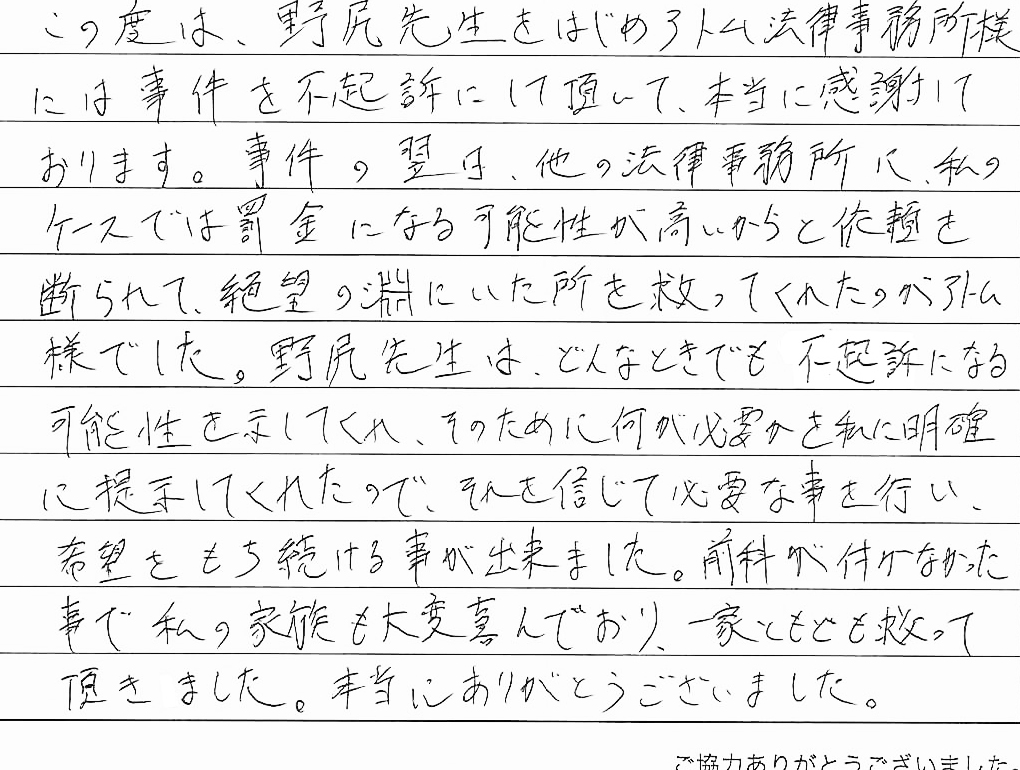 この度は、野尻先生をはじめアトム法律事務所様
には事件を不起訴にして頂いて、本当に感謝して
おります。事件の翌日、他の法律事務所に、私の
ケースでは罰金になる可能性が高いからと依頼を
断られて、絶望の淵にいた所を救ってくれたのがアトム
様でした。野尻先生は、どんなときでも不起訴になる
可能性を示してくれ、そのために何が必要かを私に明確
に提示してくれたので、それを信じて必要な事を行い、
希望をもち続ける事が出来ました。前科が付かなかった
事で私の家族も大変喜んでおり、一家ともども救って
頂きました。本当にありがとうございました。
ご協力ありがとうございました。